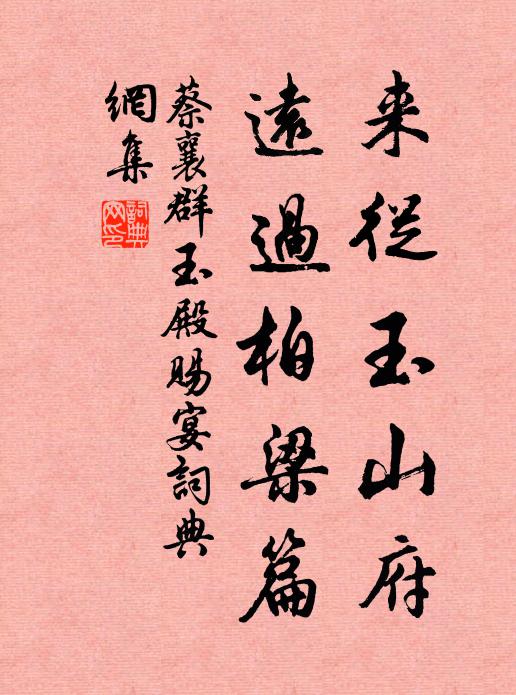 来從玉山府
遠過柏梁篇
蔡襄群玉殿賜宴詞典
網集
詞典
网印